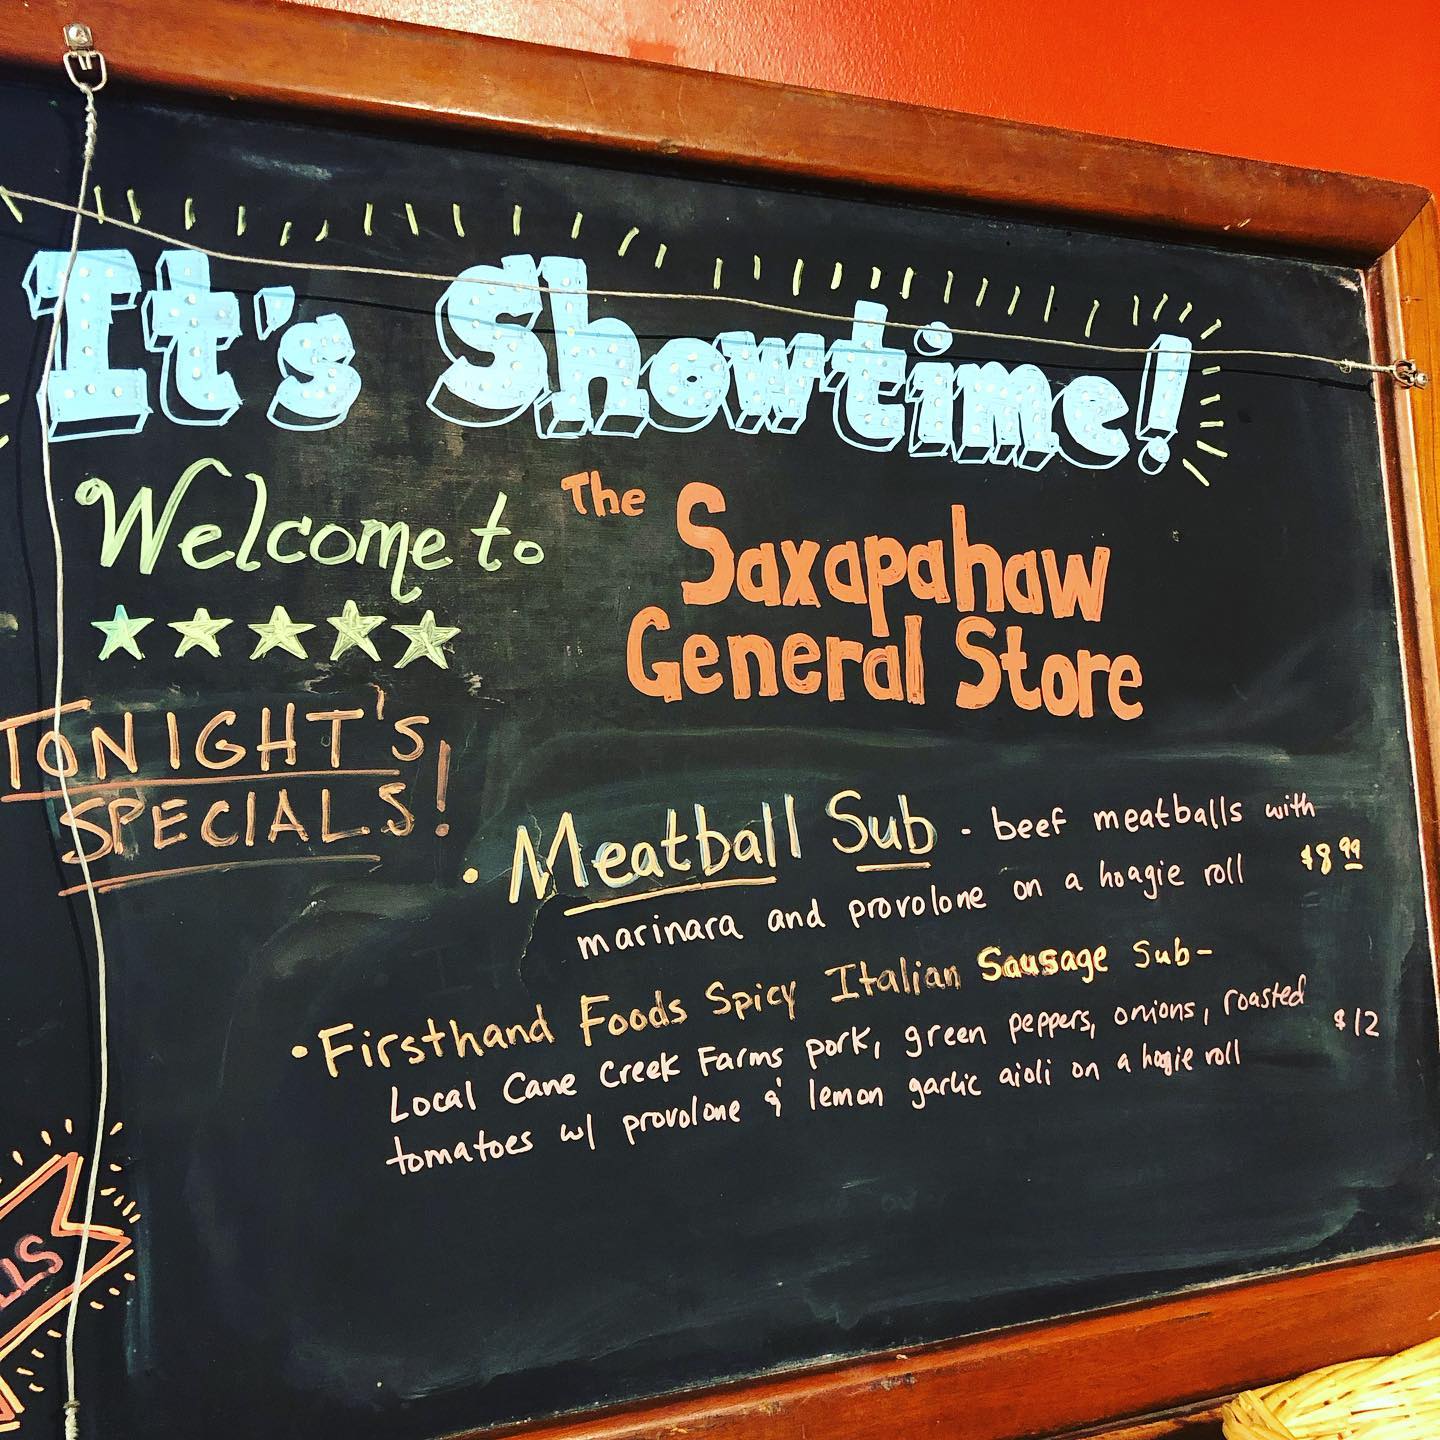 It's Showtime!
Welcome to The Saxapahaw
General Store
TONIGHT'S
SPECIALS!
• Meatball Sub - beef meatballs with
marinara and provolone on a hoagie roll $8.99
• Firsthand Foods Spicy Italian Sausage Sub-
Local Cane Creek Farms pork, green peppers, onions, roasted
tomatoes w/ provolone & lemon garlic aioli on a hogie roll $12